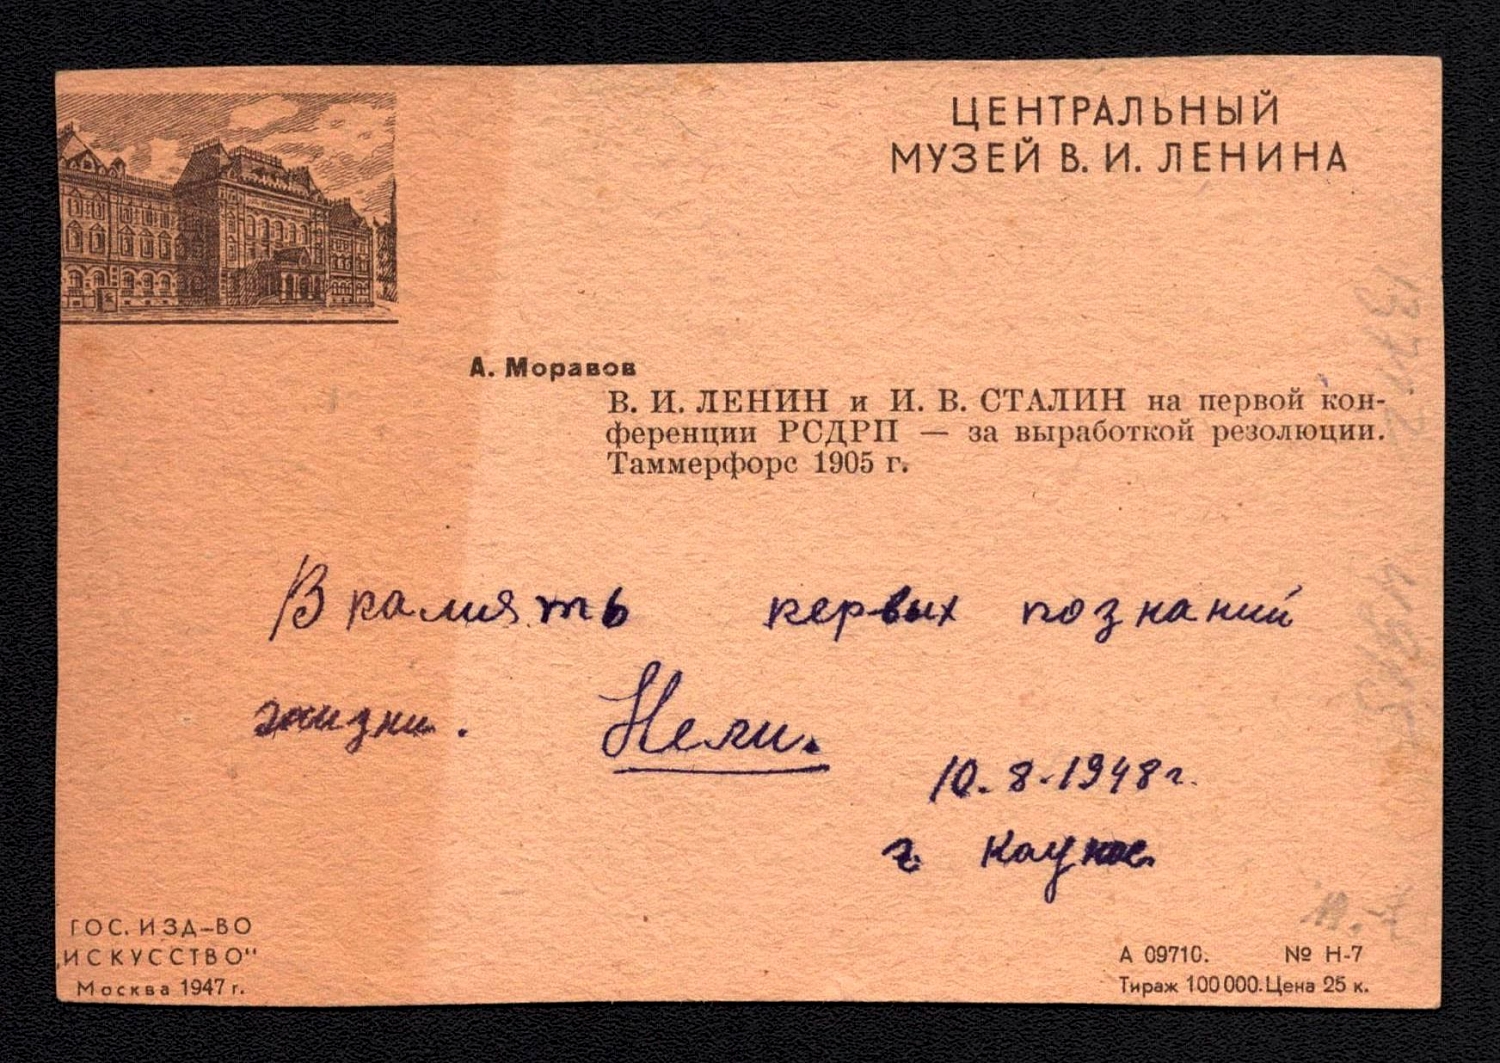 ЦЕНТРАЛЬНЫЙ
МУЗЕЙ В. И. ЛЕНИНА
А. Моравов
В. И. ЛЕНИН и И. В. СТАЛИН на первой кон-
ференции РСДРП — за выработкой резолюции.
Таммерфорс 1905 г.
В память первых познаний
жизни. Нели.
10.8.1948г.
г. Каунас
ГОС. ИЗД-ВО
„ИСКУССТВО"
Москва 1947 г.
А 09710. № Н-7
Тираж 100 000. Цена 25 к.